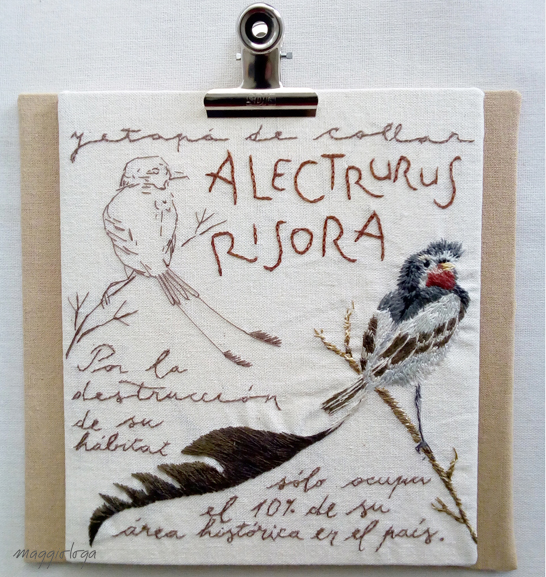 yetapá de collar
ALECTRURUS
RISORA
Por la
destrucción
de su
hábitat
sólo ocupa
el 10% de su
área histórica en el país.
maggiologa